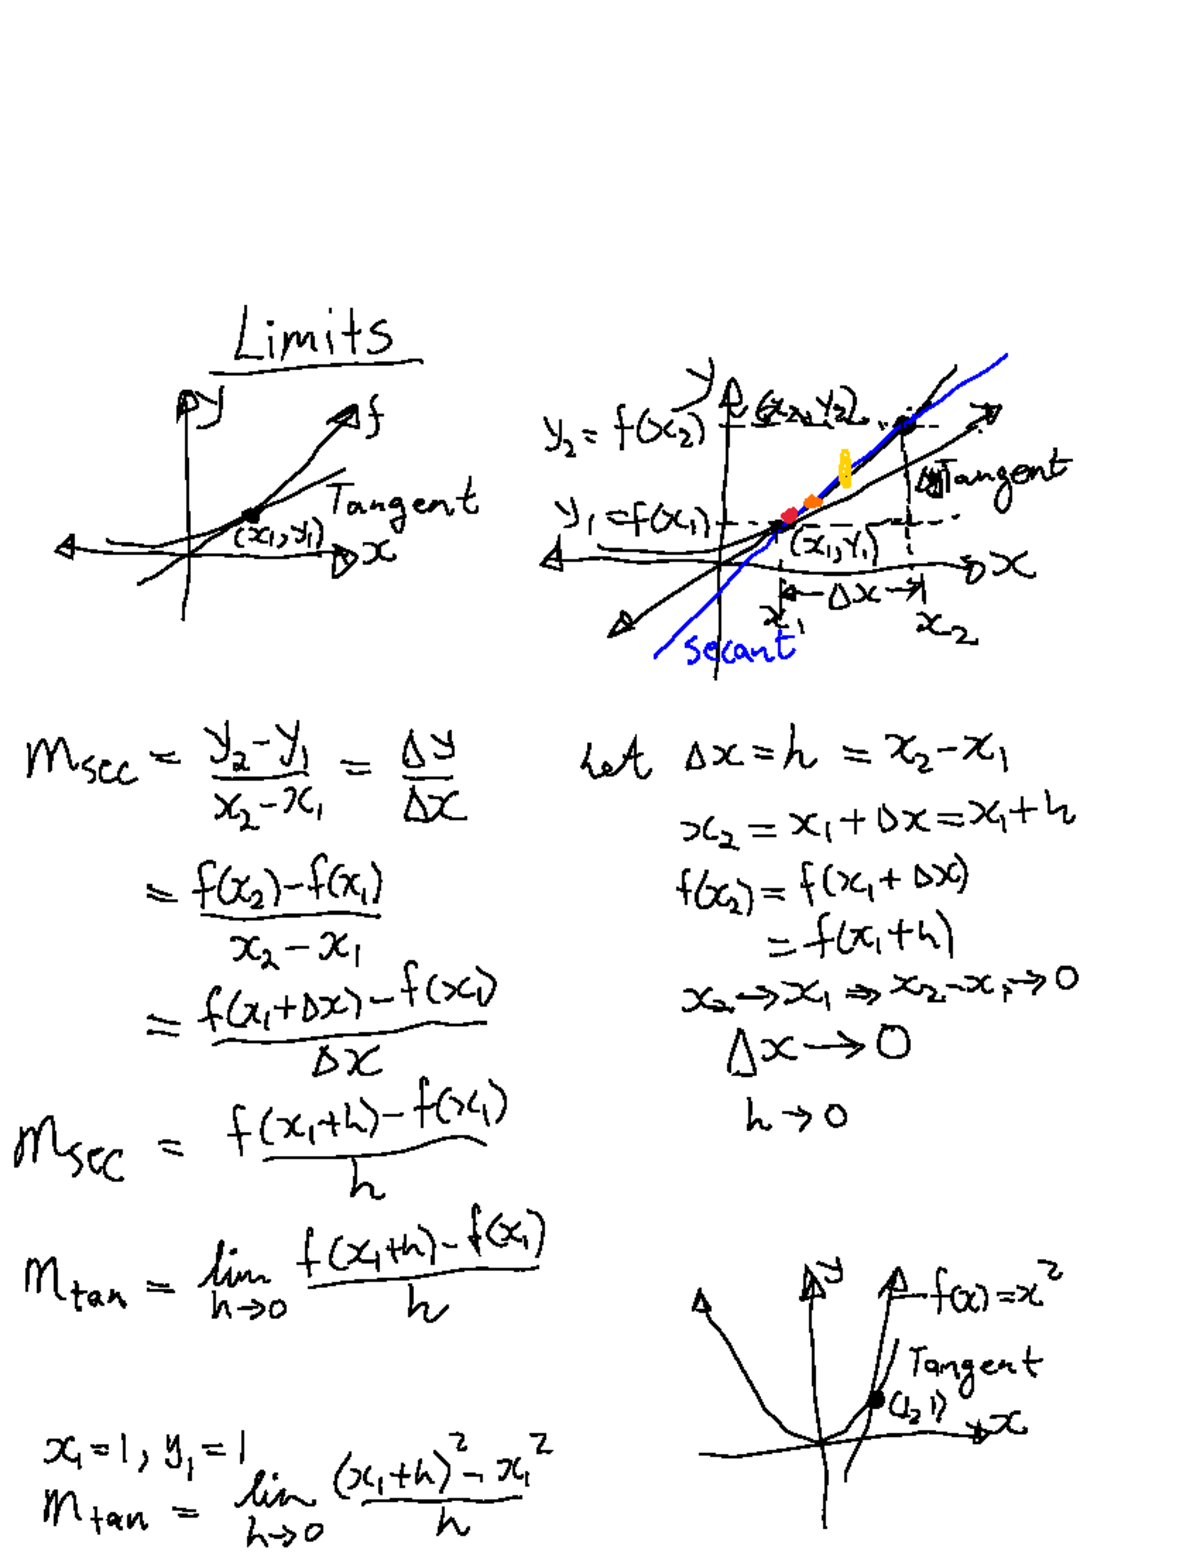 Limits
y
f
Tangent
(x₁, y₁)
x
y
(x₂, y₂)
y₂ = f(x₂)
Tangent
y₁ = f(x₁)
(x₁, y₁)
x
Δx
x₁
x₂
secant
m_sec = (y₂ - y₁)/(x₂ - x₁) = Δy/Δx
= (f(x₂) - f(x₁))/(x₂ - x₁)
= (f(x₁ + Δx) - f(x₁))/Δx
m_sec = (f(x₁+h) - f(x₁))/h
m_tan = lim h→0 (f(x₁+h) - f(x₁))/h
Let Δx = h = x₂ - x₁
x₂ = x₁ + Δx = x₁ + h
f(x₂) = f(x₁ + Δx)
= f(x₁ + h)
x₂ → x₁ ⇒ x₂ - x₁ → 0
Δx → 0
h → 0
y
f(x) = x²
Tangent
(1, 1)
x
x₁ = 1, y₁ = 1
m_tan = lim h→0 ((x₁+h)² - x₁²)/h